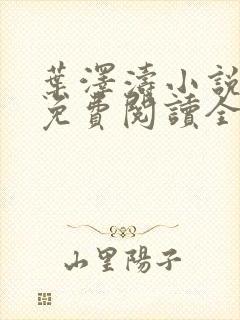 葉澤濤小說
免費閱讀全
山里陽子